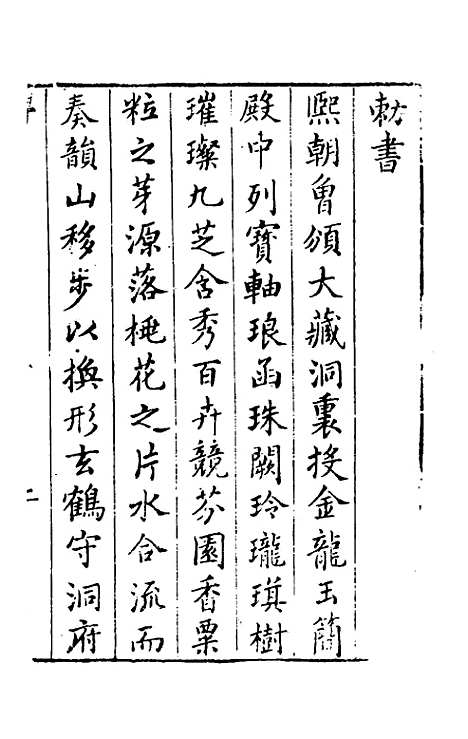 敕書
熙朝曾頒大藏洞裏投金龍玉簡
殿中列寶軸琅函珠闕玲瓏琪樹
璀璨九芝含秀百卉競芬園香粟
粒之芽源落桃花之片水合流而
奏韻山移步以換形玄鶴守洞府
二